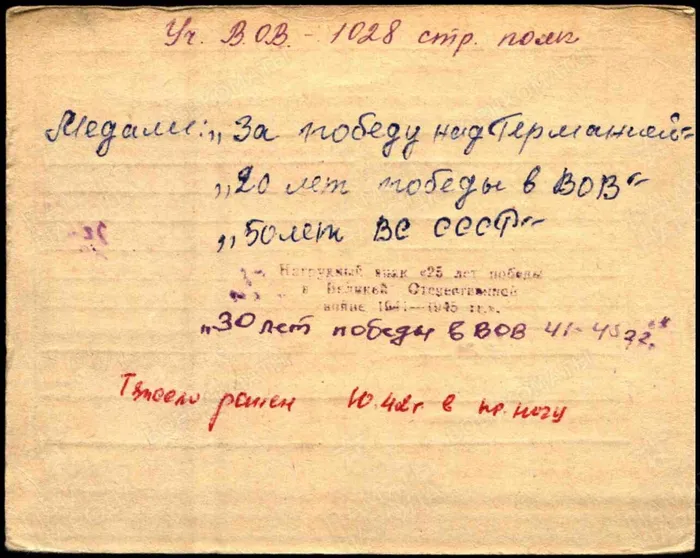 Уч. В.О.В. - 1028 стр. полк
Медали: „За победу над Германией"
„20 лет победы в ВОВ"
„50 лет ВС СССР"
Нагрудный знак «25 лет победы
в Великой Отечественной
войне 1941—1945 гг.».
„30 лет победы в ВОВ 41-45 гг."
Тяжело ранен 10.42г. в пр. ногу